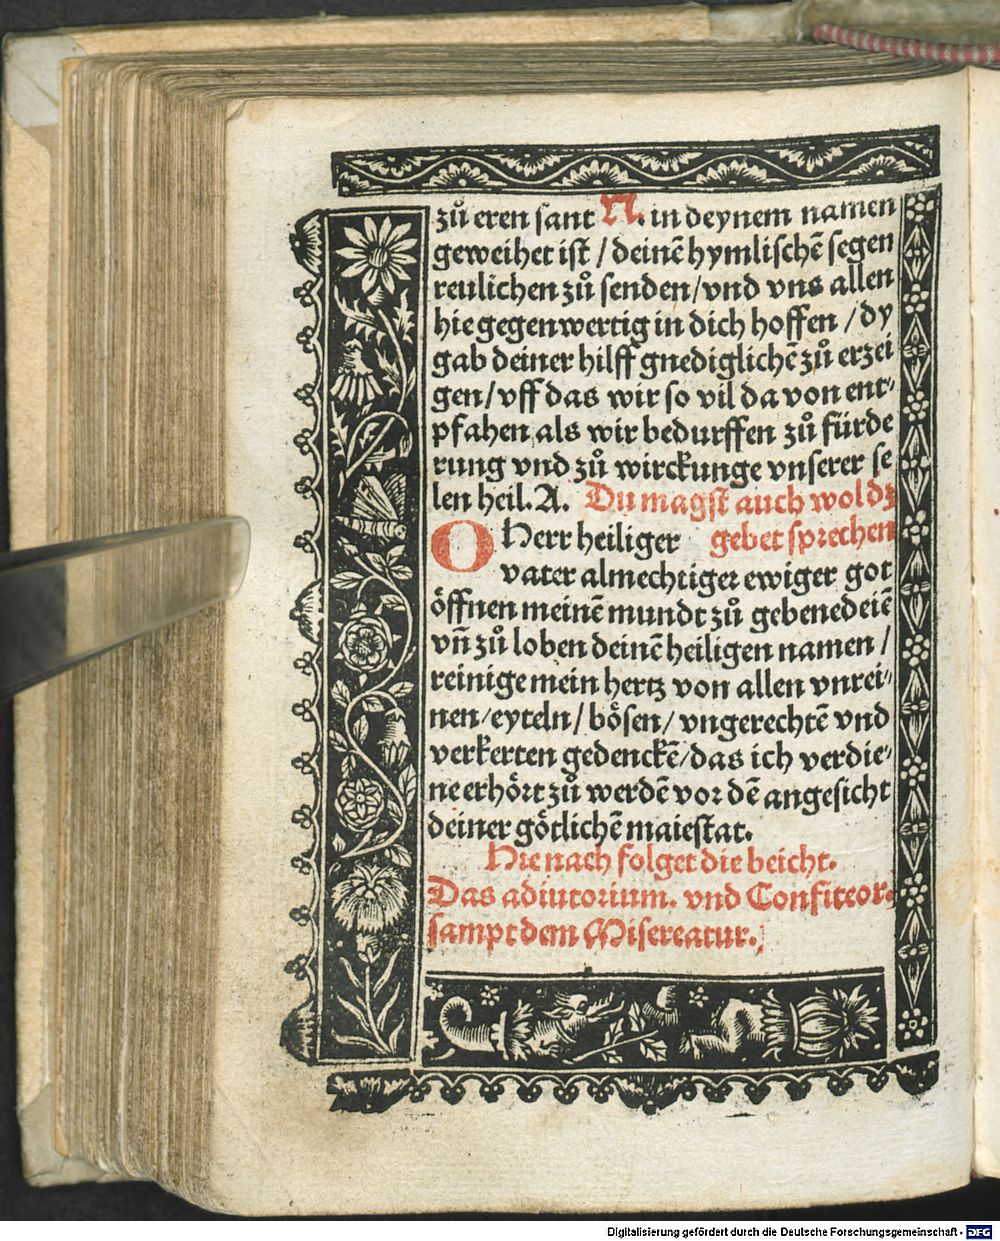 zů eren sant N. in deynem namen
geweihet ist / deinē hymlischē segen
reulichen zů senden / vnd vns allen
hie gegenwertig in dich hoffen / dy
gab deiner hilff gnediglichē zů erzei
gen / vff das wir so vil da von ent⸗
pfahen als wir bedurffen zů fürde
rung vnd zů wirckunge vnserer se
len heil. A. Du magst auch wol dz
gebet sprechen
O Herr heiliger
vater almechtiger ewiger got
öffnen meinē mundt zů gebenedeiē
vn̄ zů loben deinē heiligen namen /
reinige mein hertz von allen vnrei⸗
nen / eyteln / bösen / vngerechtē vnd
verkerten gedenckē / das ich verdie⸗
ne erhört zů werdē vor dē angesicht
deiner götlichē maiestat.
Hie nach folget die beicht.
Das adiutorium. vnd Confiteor.
sampt dem Misereatur.
Digitalisierung gefördert durch die Deutsche Forschungsgemeinschaft - DFG